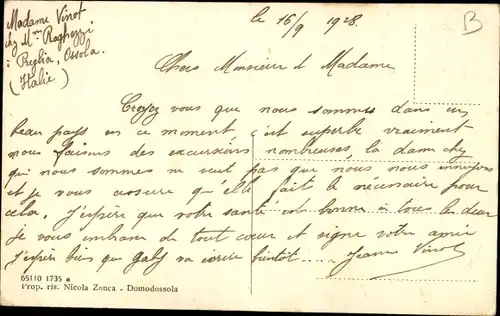 Madame Vinot
chez Mme Raghezzi
à Preglia, Ossola.
(Italie)
le 16/9 1928.
B
Chers Monsieur et Madame
Croyez vous que nous sommes dans un
beau pays en ce moment, c'est superbe vraiment
nous faisons des excursions nombreuses, la dame chez
qui nous sommes ne veut pas que nous nous ennuyons
et je vous assure qu'elle fait le nécessaire pour
cela. J'espère que votre santé est bonne à tous les deux
je vous embrasse de tout cœur et signe votre amie
j'espère bien que Gaby va écrire bientôt.... Jeanne Vinot
65110 1735 a
Prop. ris. Nicola Zonca - Domodossola